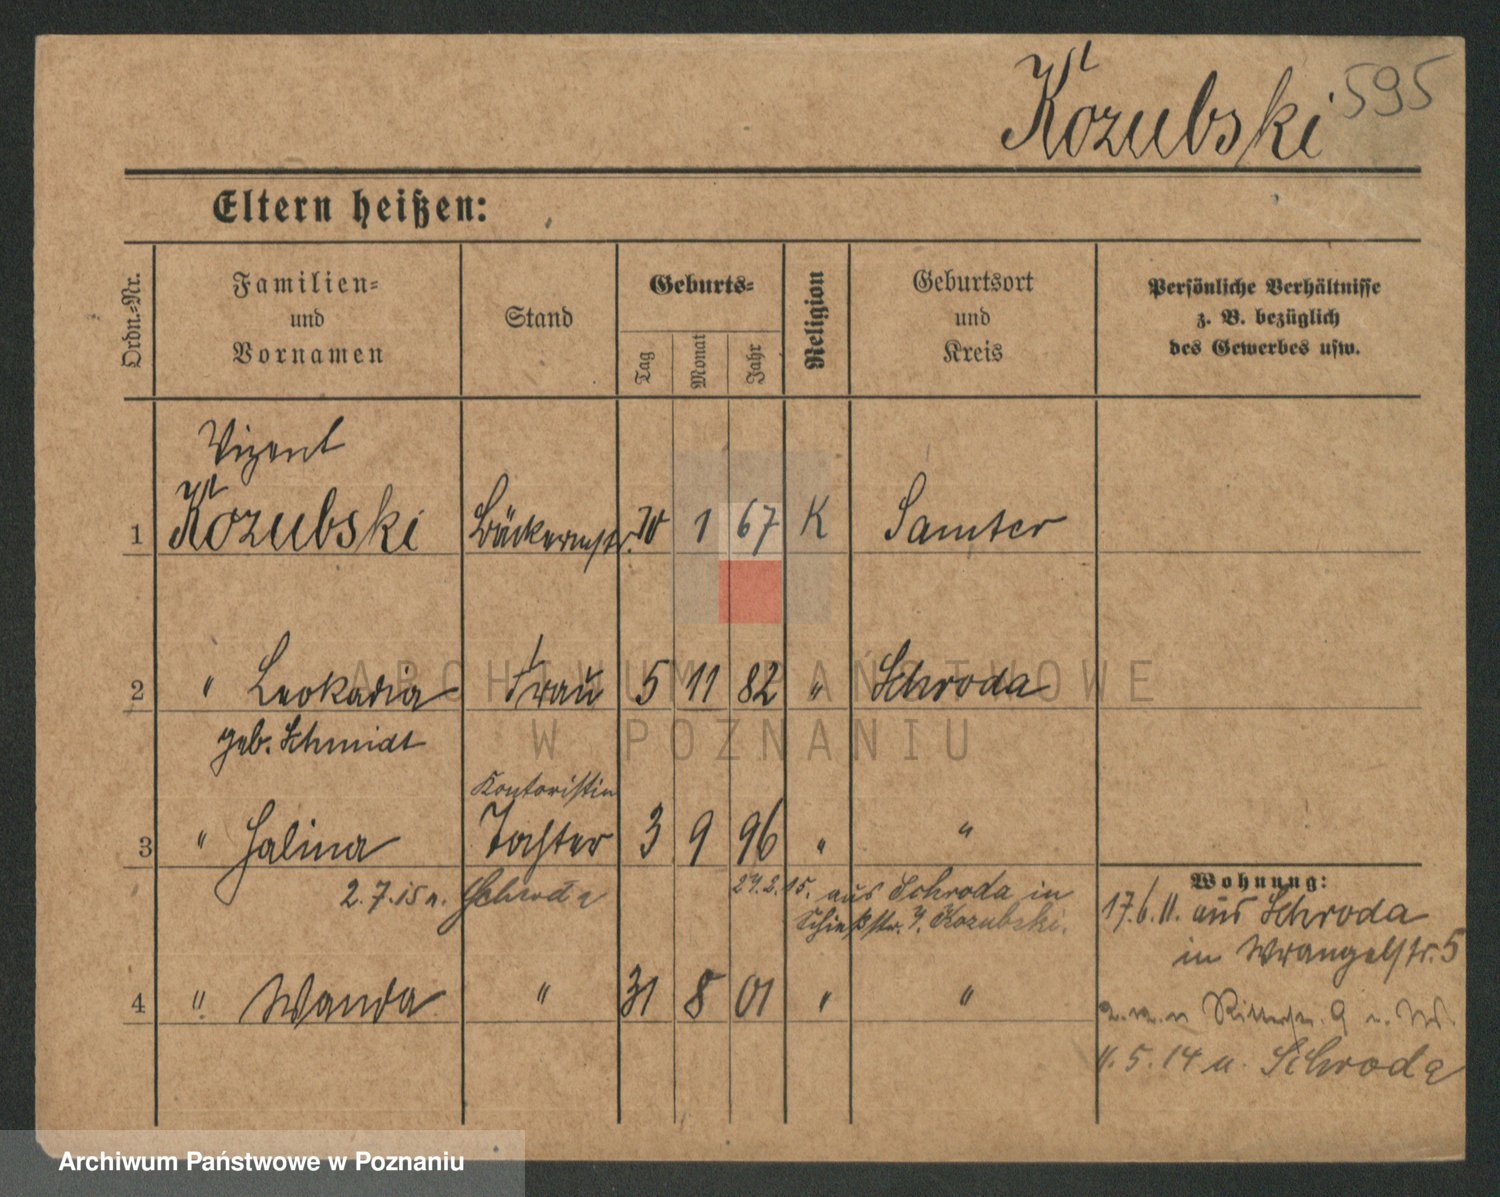 Kozubski 595
Eltern heißen:
Ordn.-Nr.
Familien-
und
Vornamen
Stand
Geburts-
Tag
Monat
Jahr
Religion
Geburtsort
und
Kreis
Persönliche Verhältnisse
z. B. bezüglich
des Gewerbes usw.
Vizent
1 Kozubski Bäckermstr. 1 67 K Samter
2 " Leokadia Frau 5 11 82 " Schroda
geb. Schmidt
Kontoristin
3 " Halina Tochter 3 9 96 " "
2.7.15 n. Schroda 24.2.15. aus Schroda in
Schießstr. 4. Kozubski.
Wohnung:
17.6.11. aus Schroda
in Wrangelstr. 5
4 " Wanda " 31 8 01 " "
Ritterstr. 9
11.5.14 n. Schroda
ARCHIWUM PAŃSTWOWE
W POZNANIU
Archiwum Państwowe w Poznaniu